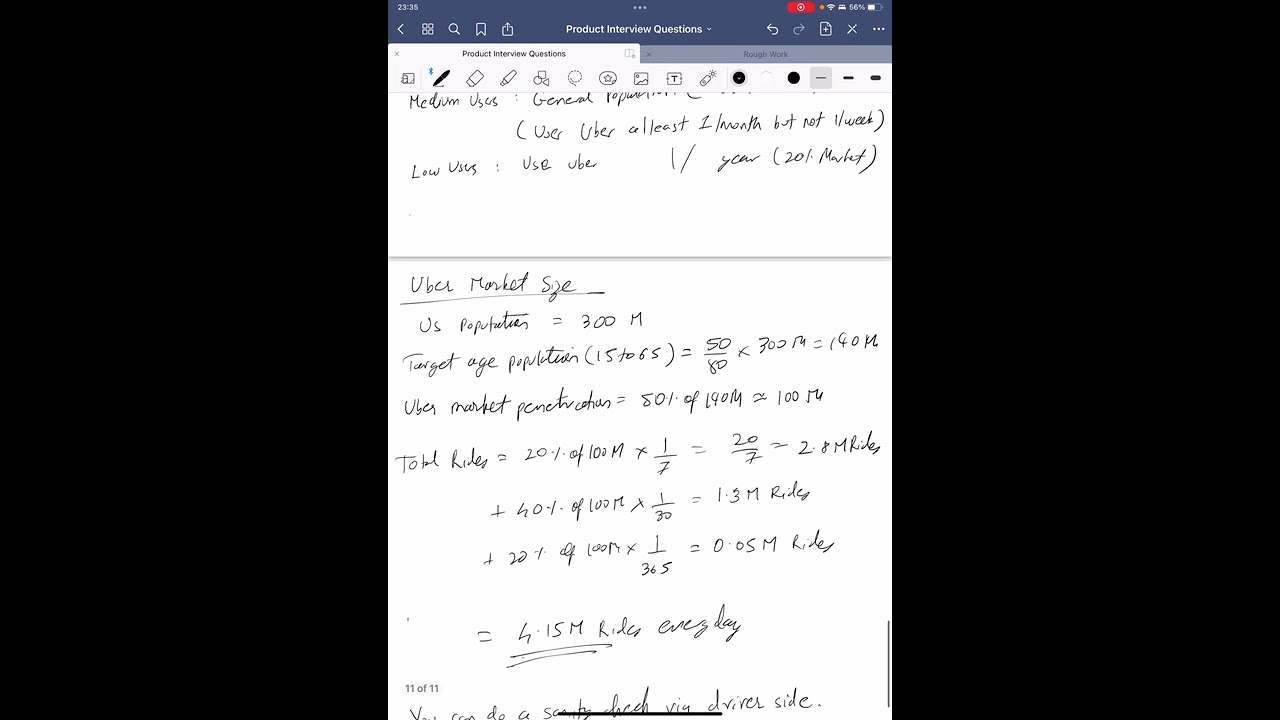 23:35
56%
Product Interview Questions
Product Interview Questions
Rough Work
Medium Users : General Population (
( User Uber atleast 1/month but not 1/week)
Low Users : Use Uber 1/ year (20% Market)
Uber Market Size
US Population = 300 M
Target age population (15 to 65) = 50/80 × 300 M = 190 M
Uber market penetration = 50% of 190M ≈ 100 M
Total Rides = 20% of 100M × 1/7 = 20/7 = 2.8 M Rides
+ 40% of 100M × 1/30 = 1.3 M Rides
+ 20% of 100M × 1/365 = 0.05 M Rides
= 4.15M Rides everyday
11 of 11
You can do a sanity check via driver side.